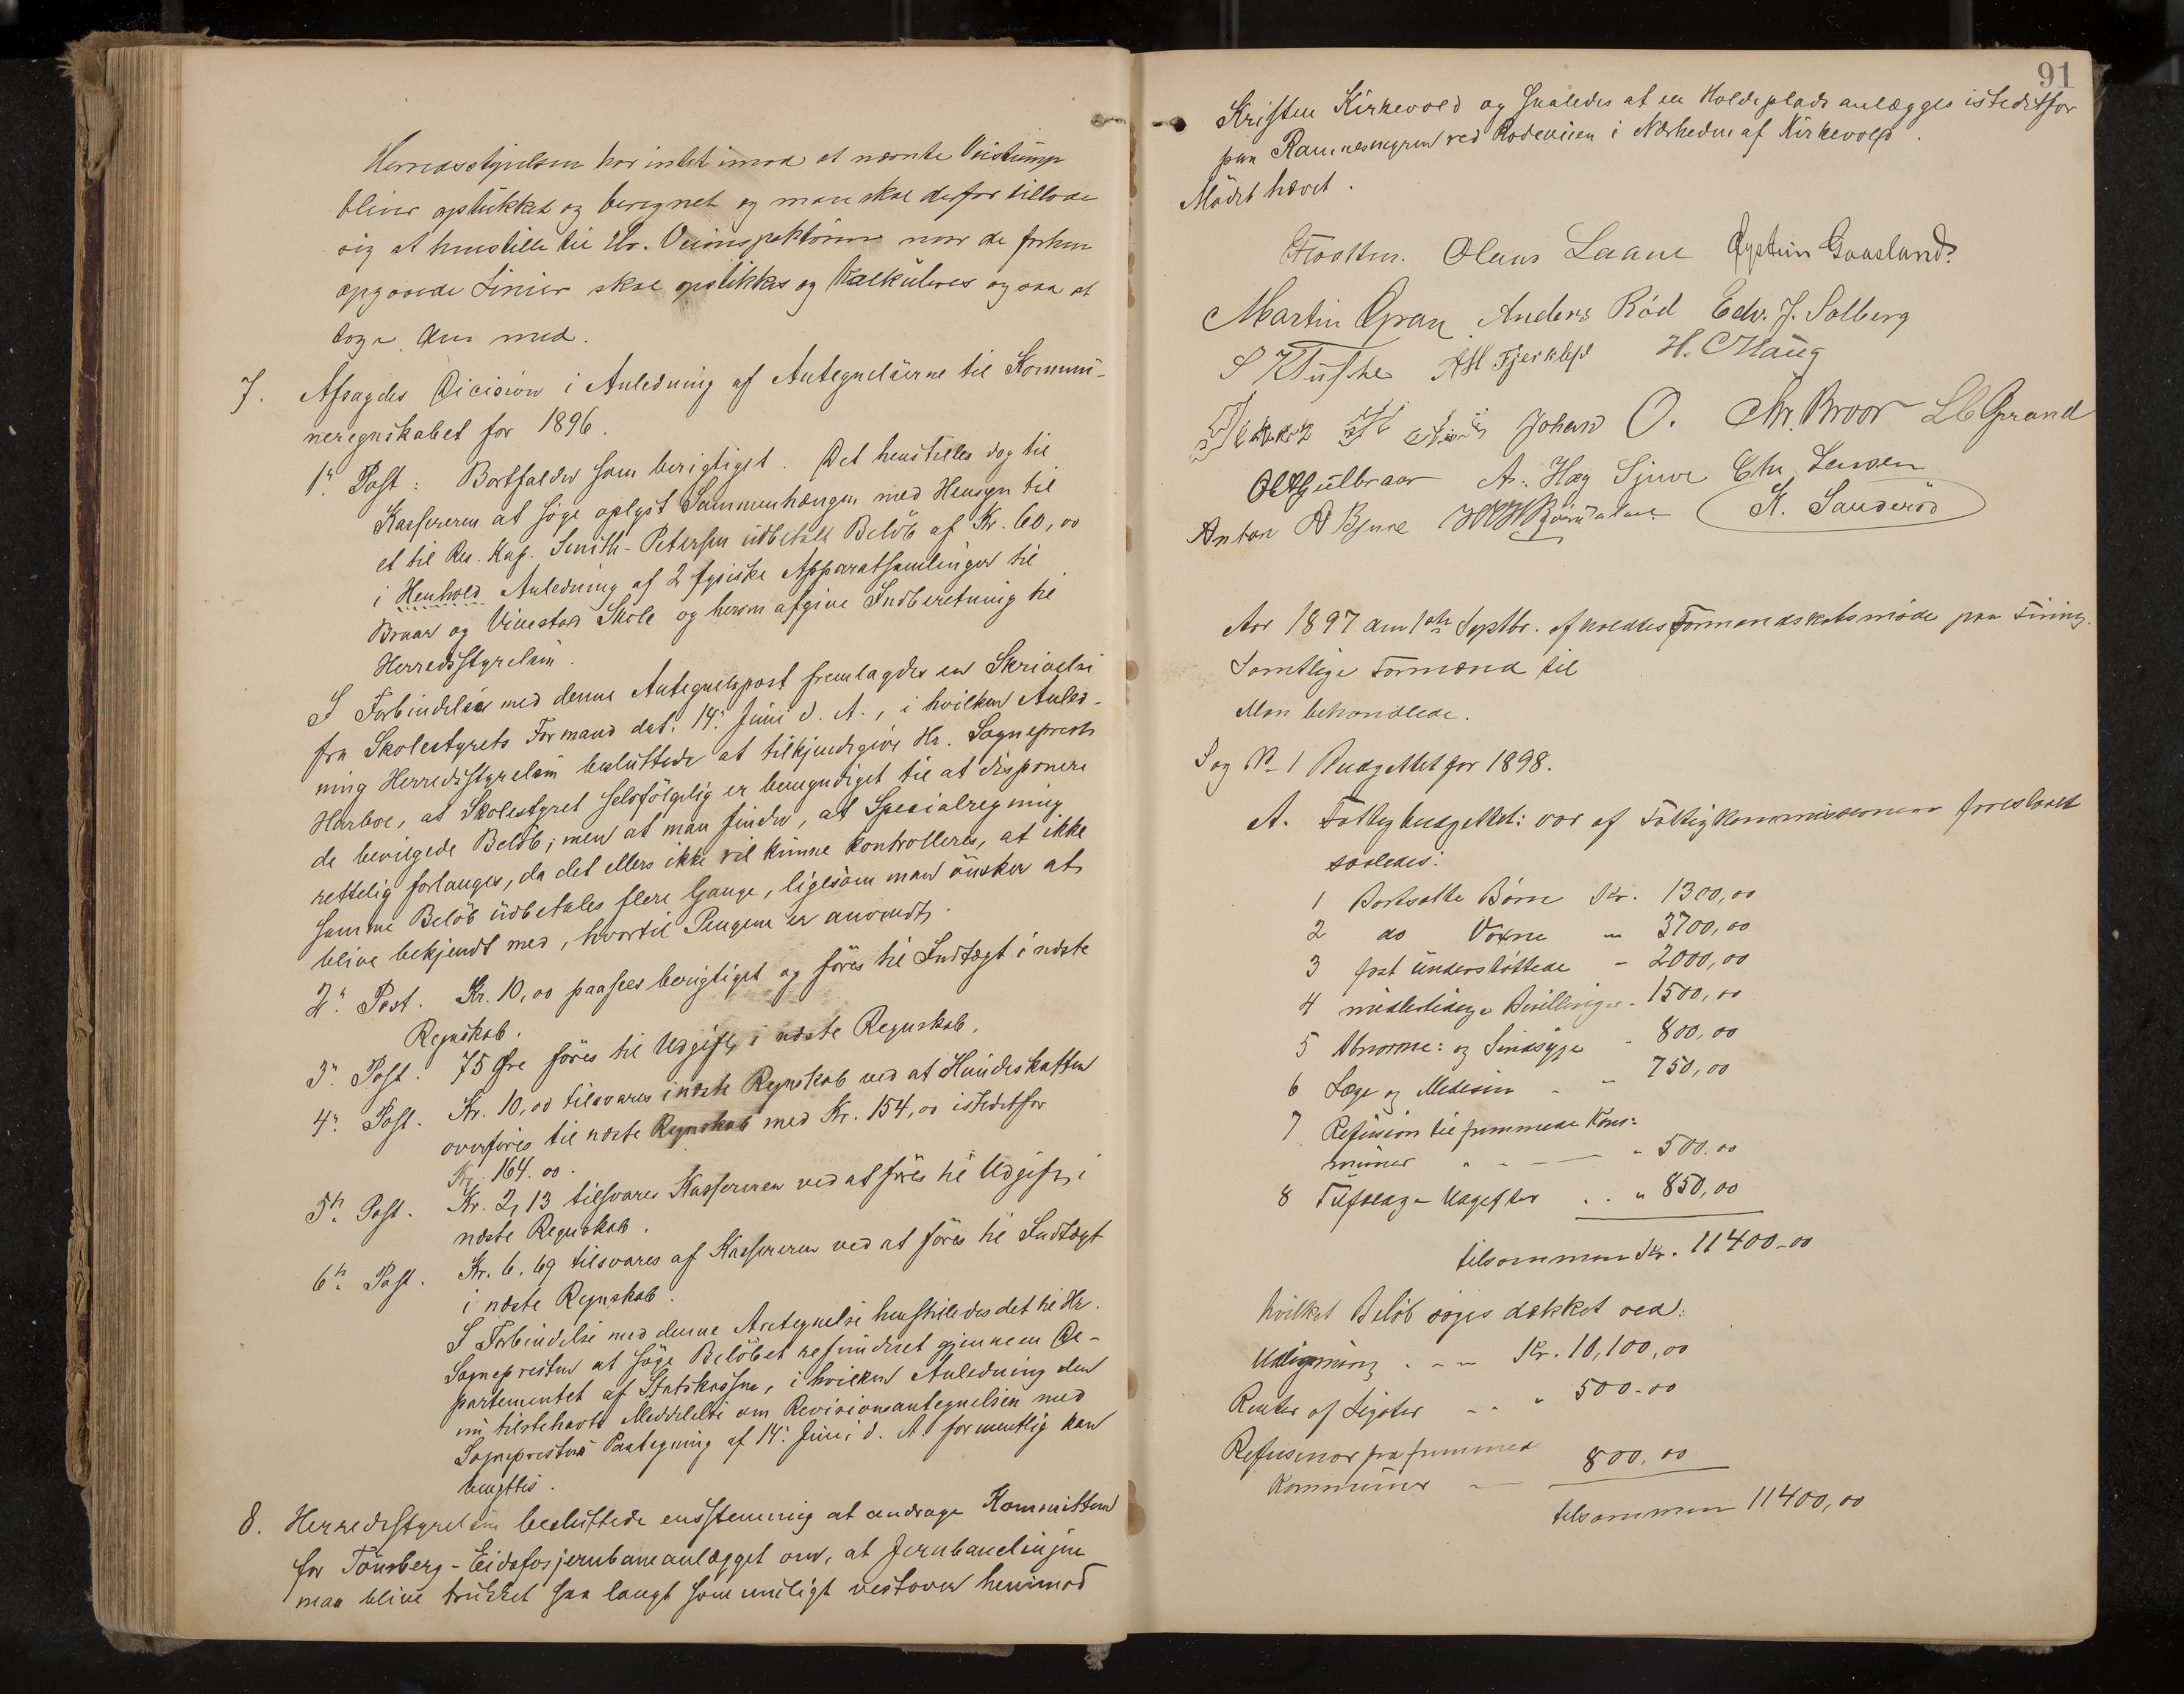 Herredsstyrelsen har intet imod at nævnte Veistump
bliver opstukket og beregnet og man skal derfor tillade
sig at henstille til Hr. Veiinspektøren naar de forhen
opgaaede Linier skal opstikkes og Kalkuleres ogsaa at
tage den med.
7. Afsagdes Dicision i Anledning af Antegnelserne til Kommu-
neregnskabet for 1896.
1n Post: Bortfalder som berigtiget. Det henstilles dog til
Kassereren at søge oplyst Sammenhængen med Hensyn til
et til Res. Kap. Smith-Petersen udbetalt Beløb af Kr. 60,00
i Henhold Anledning af 2 fysiske Apparatsamlinger til
Braar og Vivestad Skole og herom afgive Indberetning til
Herredsstyrelsen.
I Forbindelse med denne Antegnelspost fremlagdes en Skrivelse
fra Skolestyrets Formand dat. 14. Juni d. A., i hvilken Anled-
ning Herredsstyrelsen besluttede at tilkjendegive Hr. Sogneprest
Harboe, at Skolestyret selvfølgelig er bemyndiget til at disponere
de bevilgede Beløb; men at man finder, at Spesialregning
rettelig forlanges, da det ellers ikke vil kunne kontrolleres, at ikke
samme Beløb udbetales flere Gange, ligesom man ønsker at
blive bekjendt med, hvortil Pengene er anvendt.
2n. Post. Kr. 10,00 paasees berigtiget og føres til Indtægt i næste
Regnskab.
3n. Post. 75 Øre føres til Udgift i næste Regnskab.
4n. Post. Kr. 10,00 tilsvares i næste Regnskab ved at Hundeskatten
overføres til næste Regnskab med Kr. 154,00 istedetfor
Kr. 164.00.
5n. Post. Kr. 2,13 tilsvares Kassereren ved at føres til Udgift i
næste Regnskab.
6n. Post. Kr. 6,69 tilsvares af Kassereren ved at føres til Indtægt
i næste Regnskab.
I Forbindelse med denne Antegnelse henstilledes det til Hr.
Sognepresten at søge Beløbet refunderet gjennem De-
partementet af Statskassen, i hvilken Anledning den
nu tilstehavte Meddelelse om Revisionsantegnelsen med
Sogneprestens Paategning af 14. Juni d. A. formentlig kan
benyttes.
8. Herredsstyrelsen besluttede enstemmig at andrage Kommitteen
for Tønsberg-Eidsfosjernbaneanlægget om, at Jernbanelinjen
maa blive trukket saa langt som muligt vestover henimod
91
Kristen Kirkevold og saaledes at en Holdeplads anlægges istedetfor
paa Ramnesengen ved Rodeveien i Nærheden af Kirkevold.
Mødet hævet.
Olaus Laane Øystein Gaasland.
Martin Gran Anders Rød Edv. J. Solberg
H. C. Haug
Johan O. Chr. Broor L C Grand
A. Hæg Sjuve Chr Jensen
Anton A Bjune K. Sanderød
Aar 1897 den 1ste Septbr. afholdtes Formandskabsmøde paa Fining.
Samtlige Formænd til
Man behandlede.
Sag No 1 Budgettet for 1898.
A. Fattigbudgettet: var af Fattigkommissionen foreslaaet
saaledes:
1 Bortsatte Børn Kr. 1300,00
2 do Voxne " 3700,00
3 fast understøttede - 2000,00
4 midlertidige Bevillinger - 1500,00
5 Abnorme: og Sindsyge - 800,00
6 Læge og Medesin - " 750,00
7 Refusion til fremmede Kom:
muner " - — " 500.00
8 Tilfældige Udgifter . . " 850,00
tilsammen Kr. 11400-00
hvilket Beløb søges dækket ved:
Udligning . - - Kr. 10,100,00
Renter af Legater - - " 500-00
Refusioner fra fremmed
Kommuner - — 800,00
tilsammen 11400,00